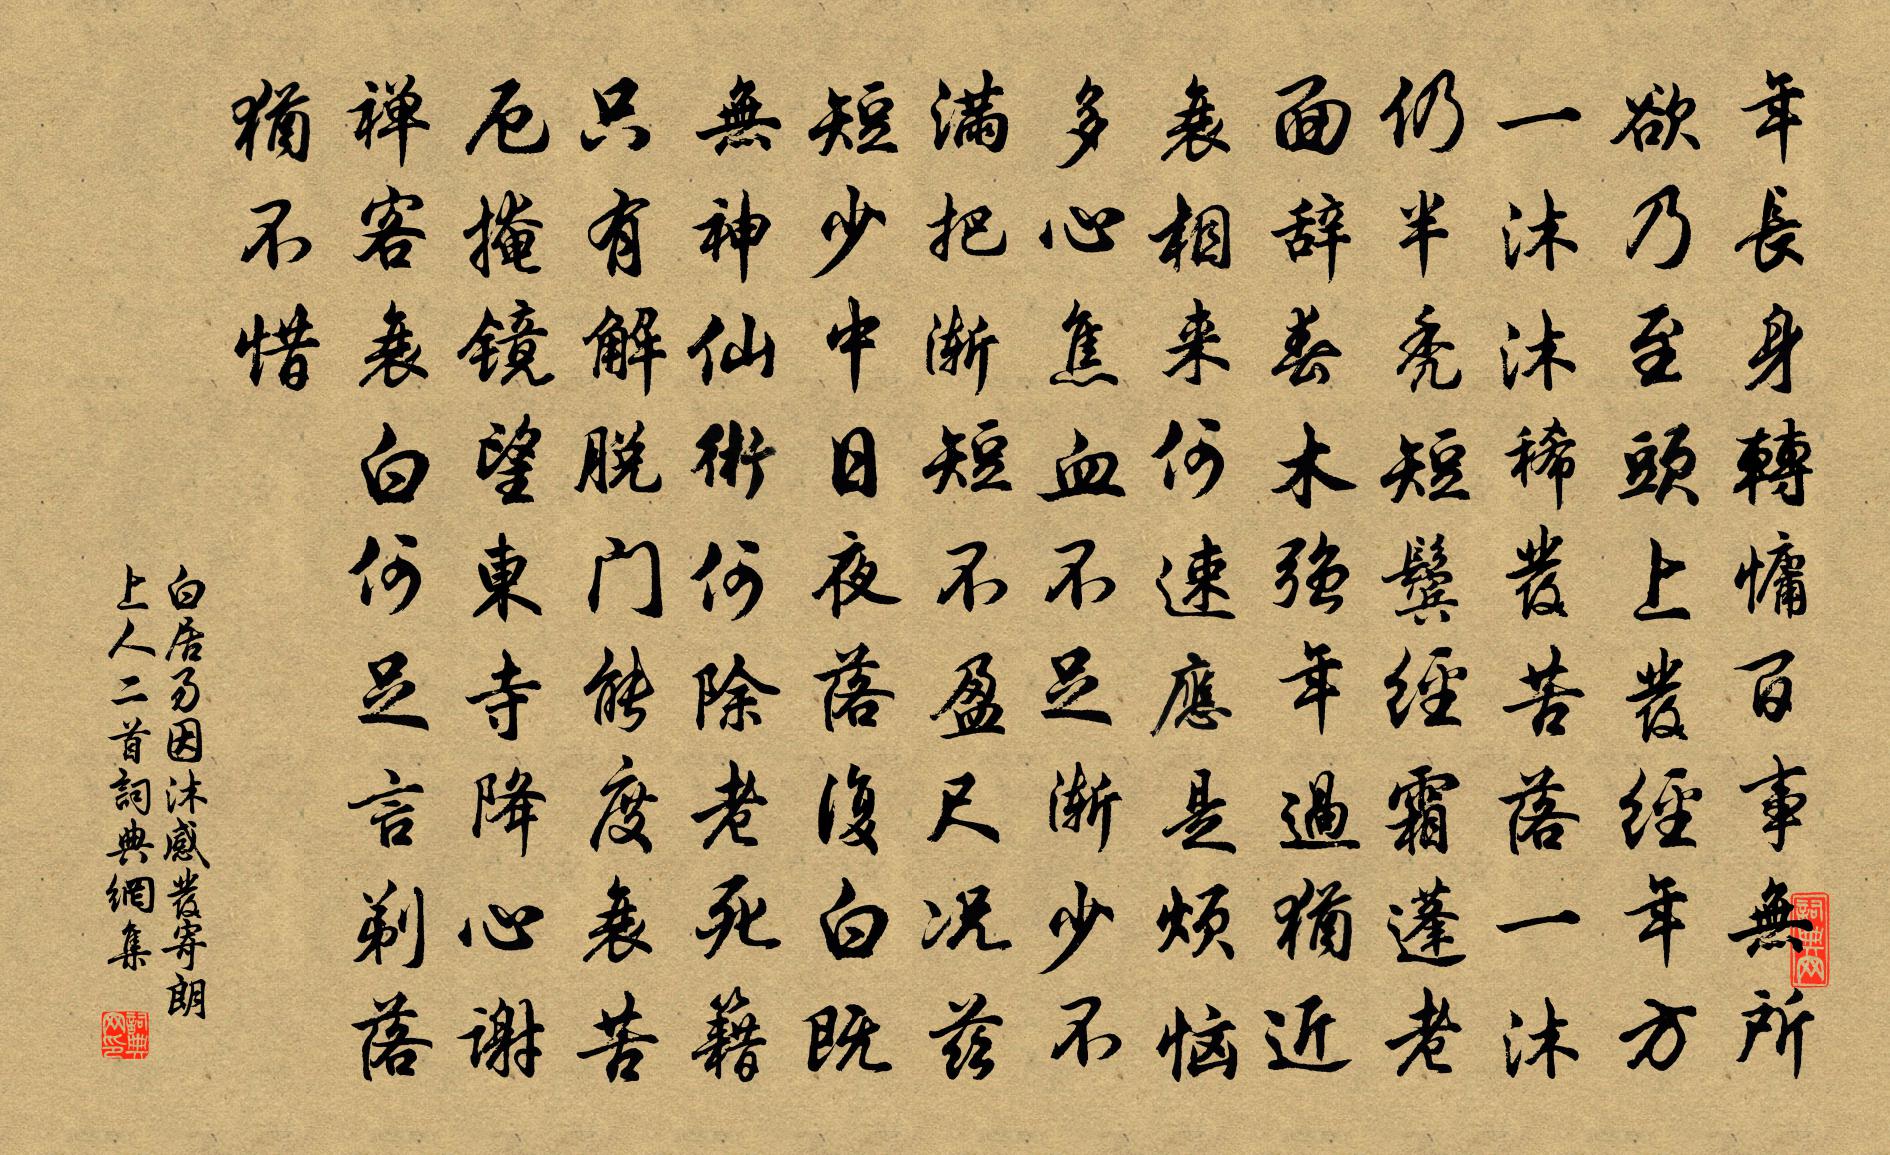 年長身轉慵百事無所
欲乃至頭上發經年方
一沐沐稀發苦落一沐
仍半禿短鬢經霜蓬老
面辞春木強年過猶近
衰相来何速應是煩恼
多心焦血不足漸少不
滿把漸短不盈尺况茲
短少中日夜落復白既
無神仙術何除老死籍
只有解脱门能度衰苦
厄掩镜望東寺降心謝
禅客衰白何足言剃落
猶不惜
白居易因沐感發寄朗
上人二首詞典網集
詞典网
詞典网印